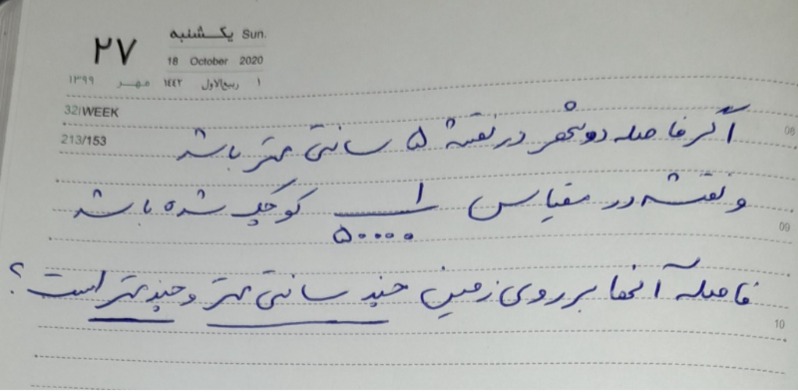 ۲۷
یکشنبه Sun.
18 October 2020
۱۳۹۹ مهر ۱۴۴۲ ربیع‌الاول ۱
32/WEEK
213/153
08
اگر فاصله دو شهر در نقشه ۵ سانتی متر باشد
و نقشه در مقیاس ۱/۵۰۰۰۰ کوچک شده باشد
09
فاصله آنها بر روی زمین چند سانتی متر و چند متر است؟
10